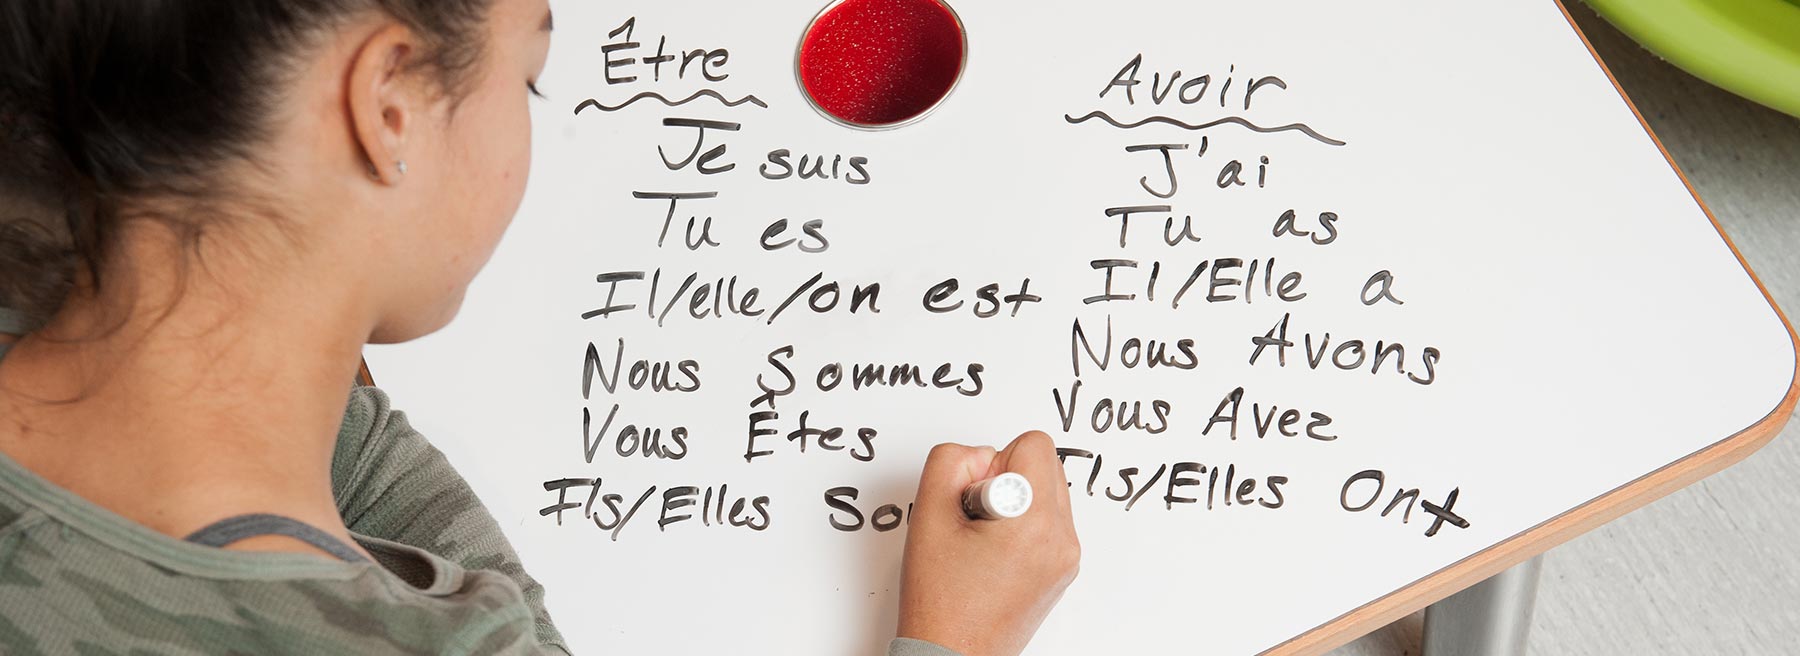 Être
Je suis
Tu es
Il/elle/on est
Nous Sommes
Vous Êtes
Ils/Elles
Avoir
J'ai
Tu as
Il/Elle a
Nous Avons
Vous Avez
Ils/Elles Ont